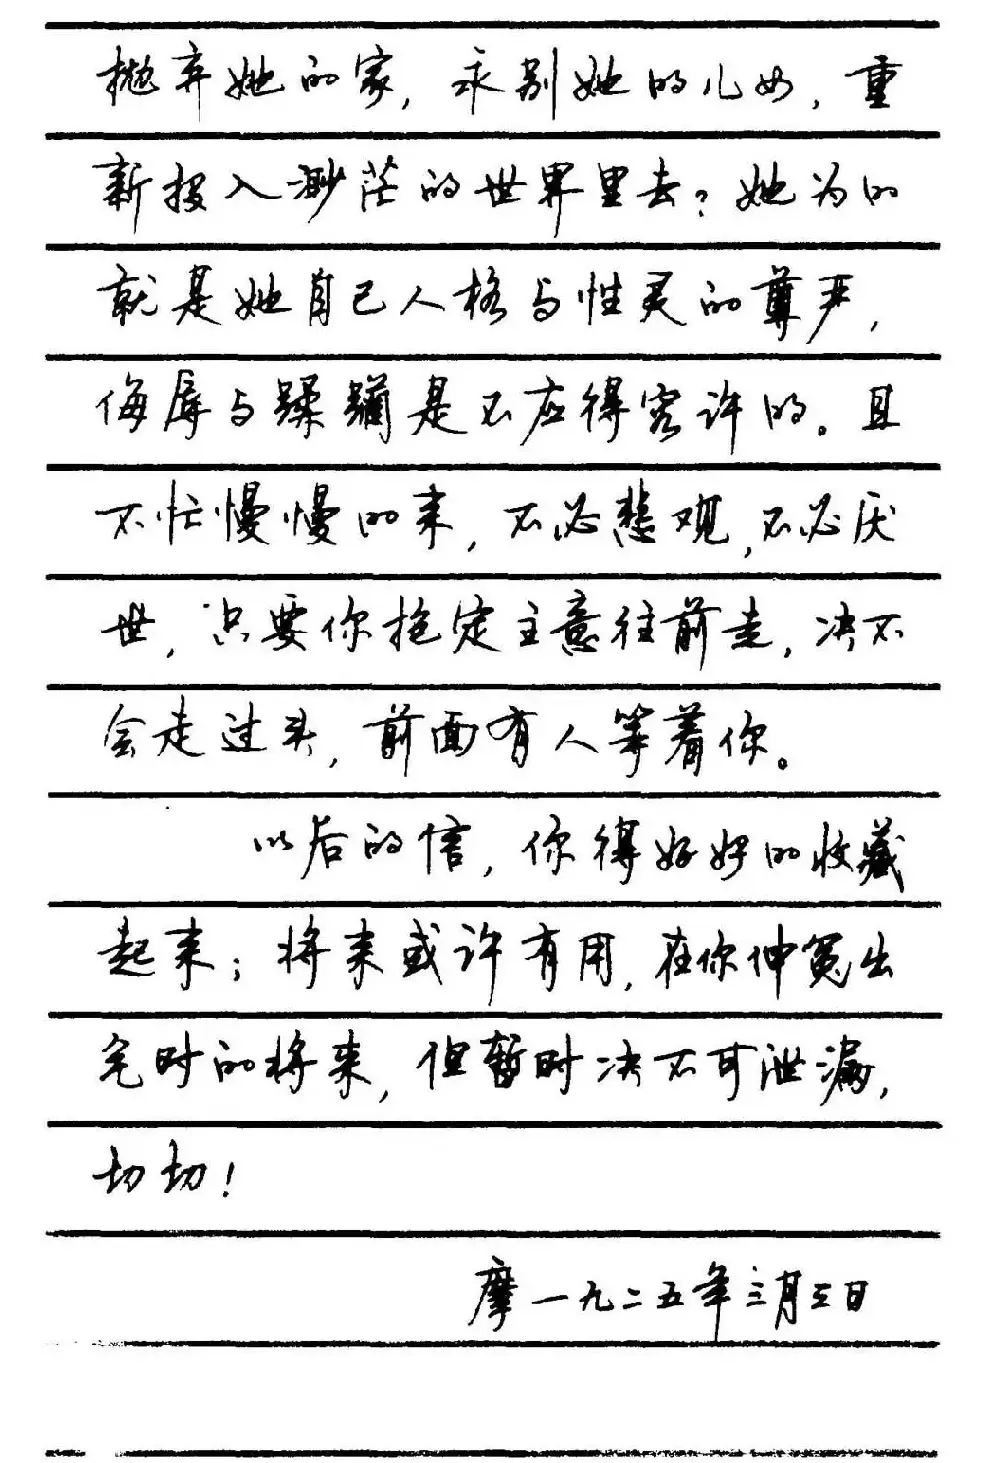 抛弃她的家，永别她的儿女，重
新投入渺茫的世界里去？她为的
就是她自己人格与性灵的尊严，
侮辱与蹂躏是不应得容许的。且
不忙慢慢的来，不必悲观，不必厌
世，只要你抱定主意往前走，决不
会走过头，前面有人等着你。
以后的信，你得好好的收藏
起来；将来或许有用，在你伸冤出
气时的将来，但暂时决不可泄漏，
切切！
摩一九二五年三月三日